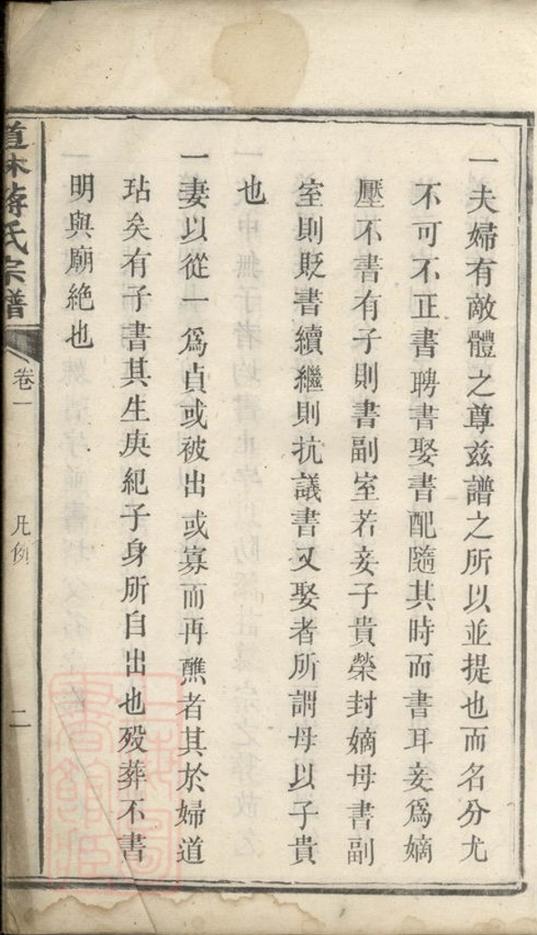 一夫婦有敵體之尊茲譜之所以並提也而名分尤
不可不正書聘書娶書配隨其時而書耳妾爲嫡
壓不書有子則書副室若妾子貴榮封嫡母書副
室則貶書續繼則抗議書又娶者所謂母以子貴
也
一妻以從一爲貞或被出或寡而再醮者其於婦道
玷矣有子書其生庚紀子身所自出也歿葬不書
明與廟絶也
道林蔣氏宗譜
卷一
凡例
二